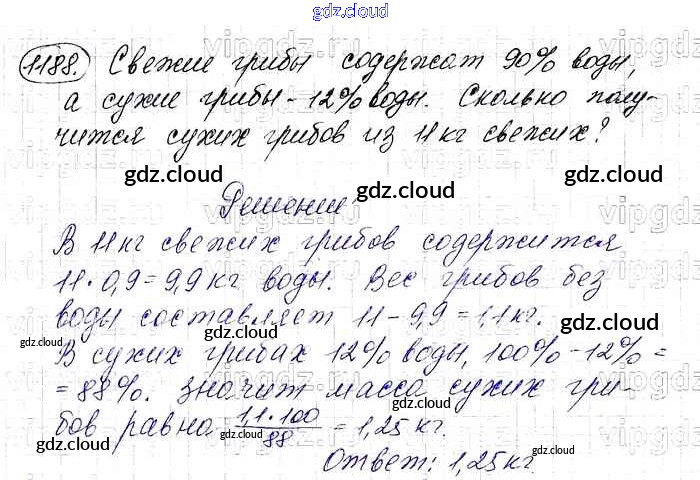 gdz.cloud
1188. Свежие грибы содержат 90% воды,
а сухие грибы - 12% воды. Сколько полу-
чится сухих грибов из 11 кг свежих?
gdz.cloud gdz.cloud
gdz.cloud
Решение:
В 11 кг свежих грибов содержится
11 · 0,9 = 9,9 кг воды. Вес грибов без
gdz.cloud
воды составляет 11 - 9,9 = 1,1 кг.
gdz.cloud gdz.cloud
В сухих грибах 12% воды, 100% - 12% =
= 88%. Значит масса сухих гри-
gdz.cloud gdz.cloud
бов равна 1,1 · 100 / 88 = 1,25 кг.
gdz.cloud gdz.cloud
Ответ: 1,25 кг.
gdz.cloud